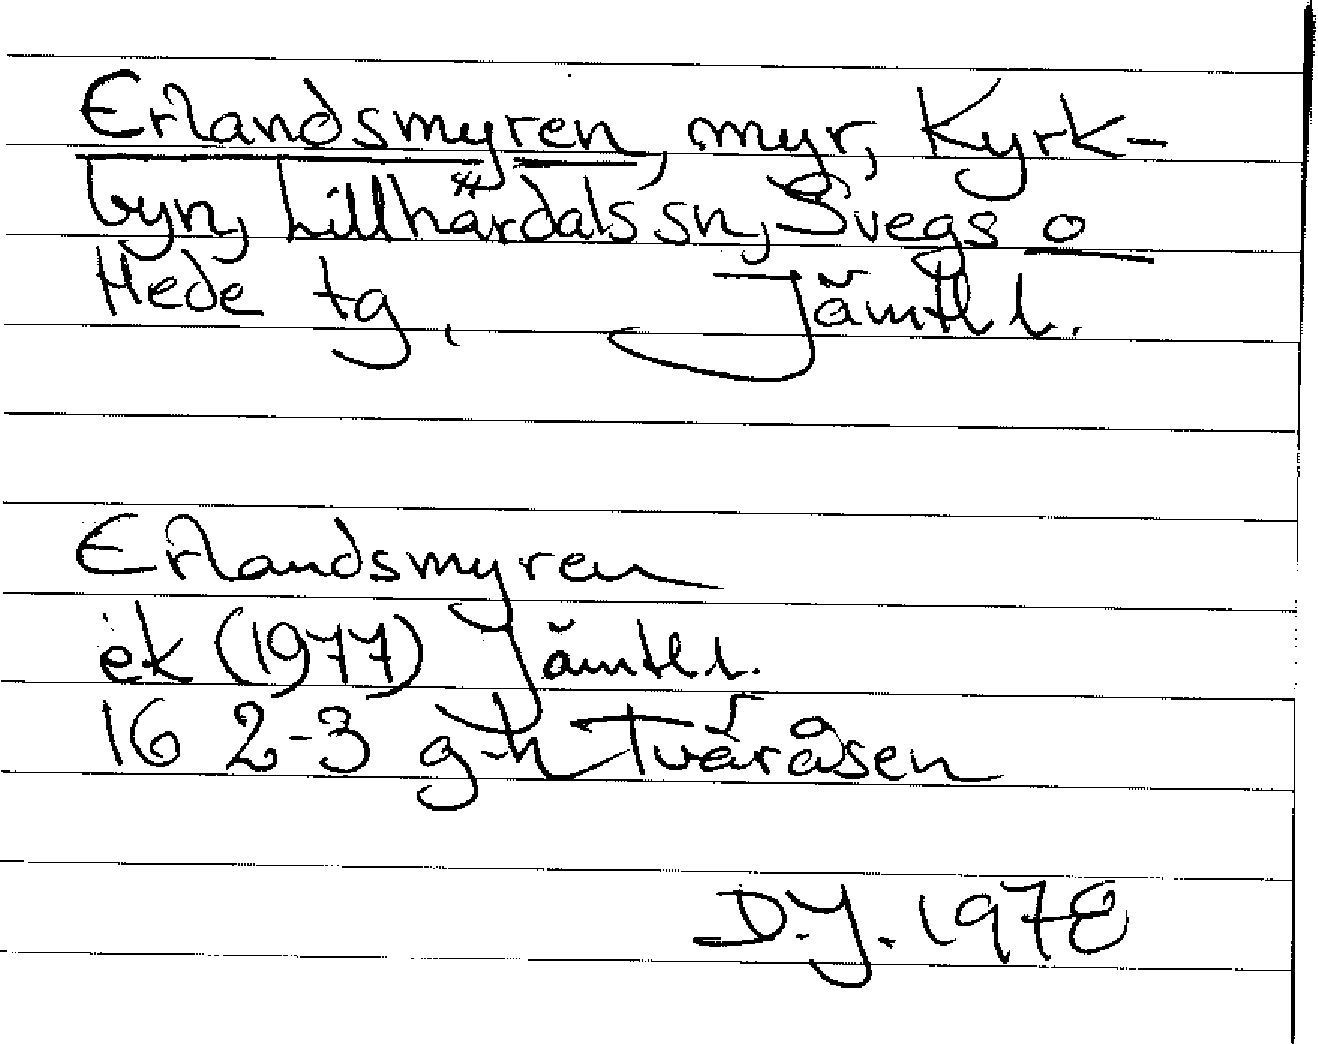 Erlandsmyren, myr, Kyrk-
byn, Lillhärdals sn, Svegs o
Hede tg, Jämtl l.
Erlandsmyren
ek (1977) Jämtl l.
16 2-3 g-h Tväråsen
D.J. 1978